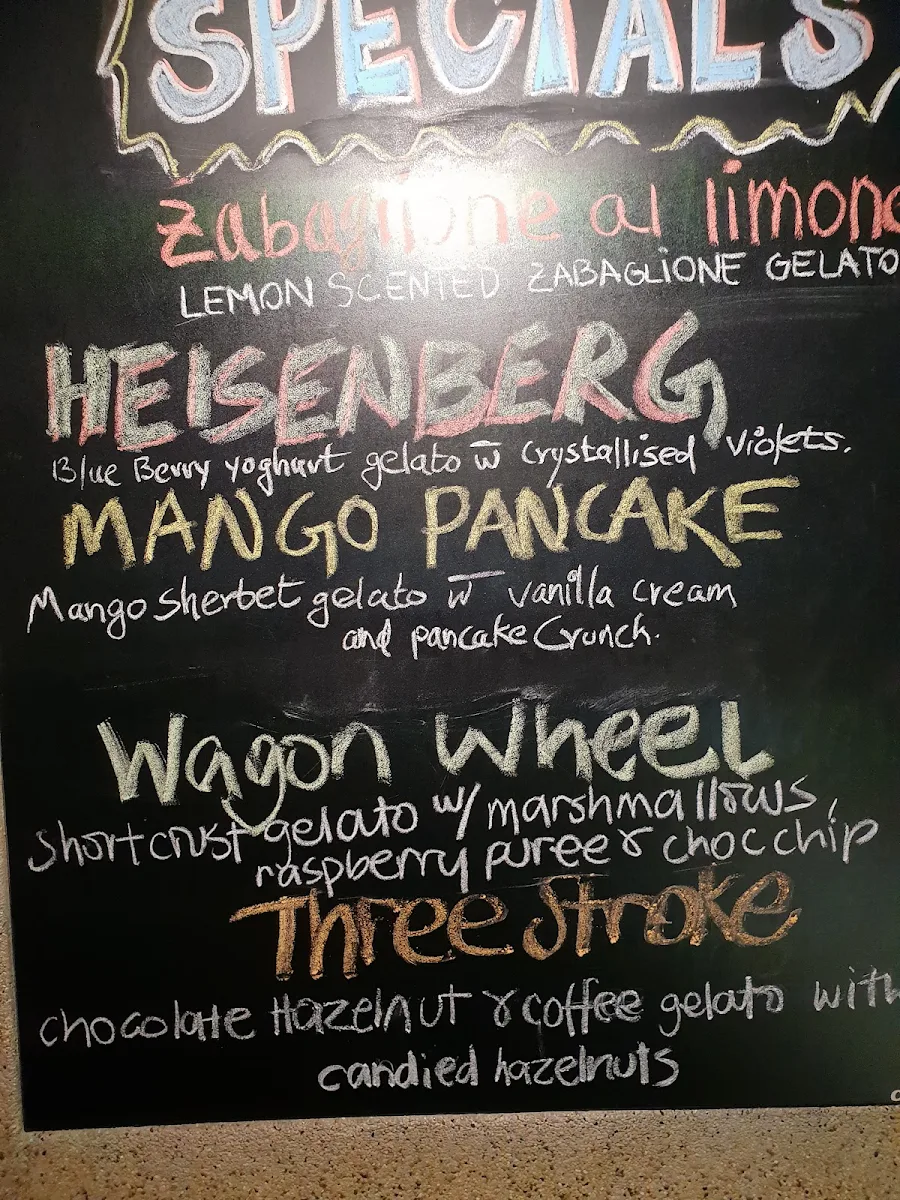 SPECIALS
Zabaglione al limone
LEMON SCENTED ZABAGLIONE GELATO
HEISENBERG
Blue Berry yoghurt gelato w̄ Crystallised Violets.
MANGO PANCAKE
Mango Sherbet gelato w̄ vanilla cream
and pancake Crunch.
Wagon Wheel
Shortcrust gelato w/ marshmallows,
raspberry puree & choc chip
Three Stroke
chocolate Hazelnut & coffee gelato with
candied hazelnuts